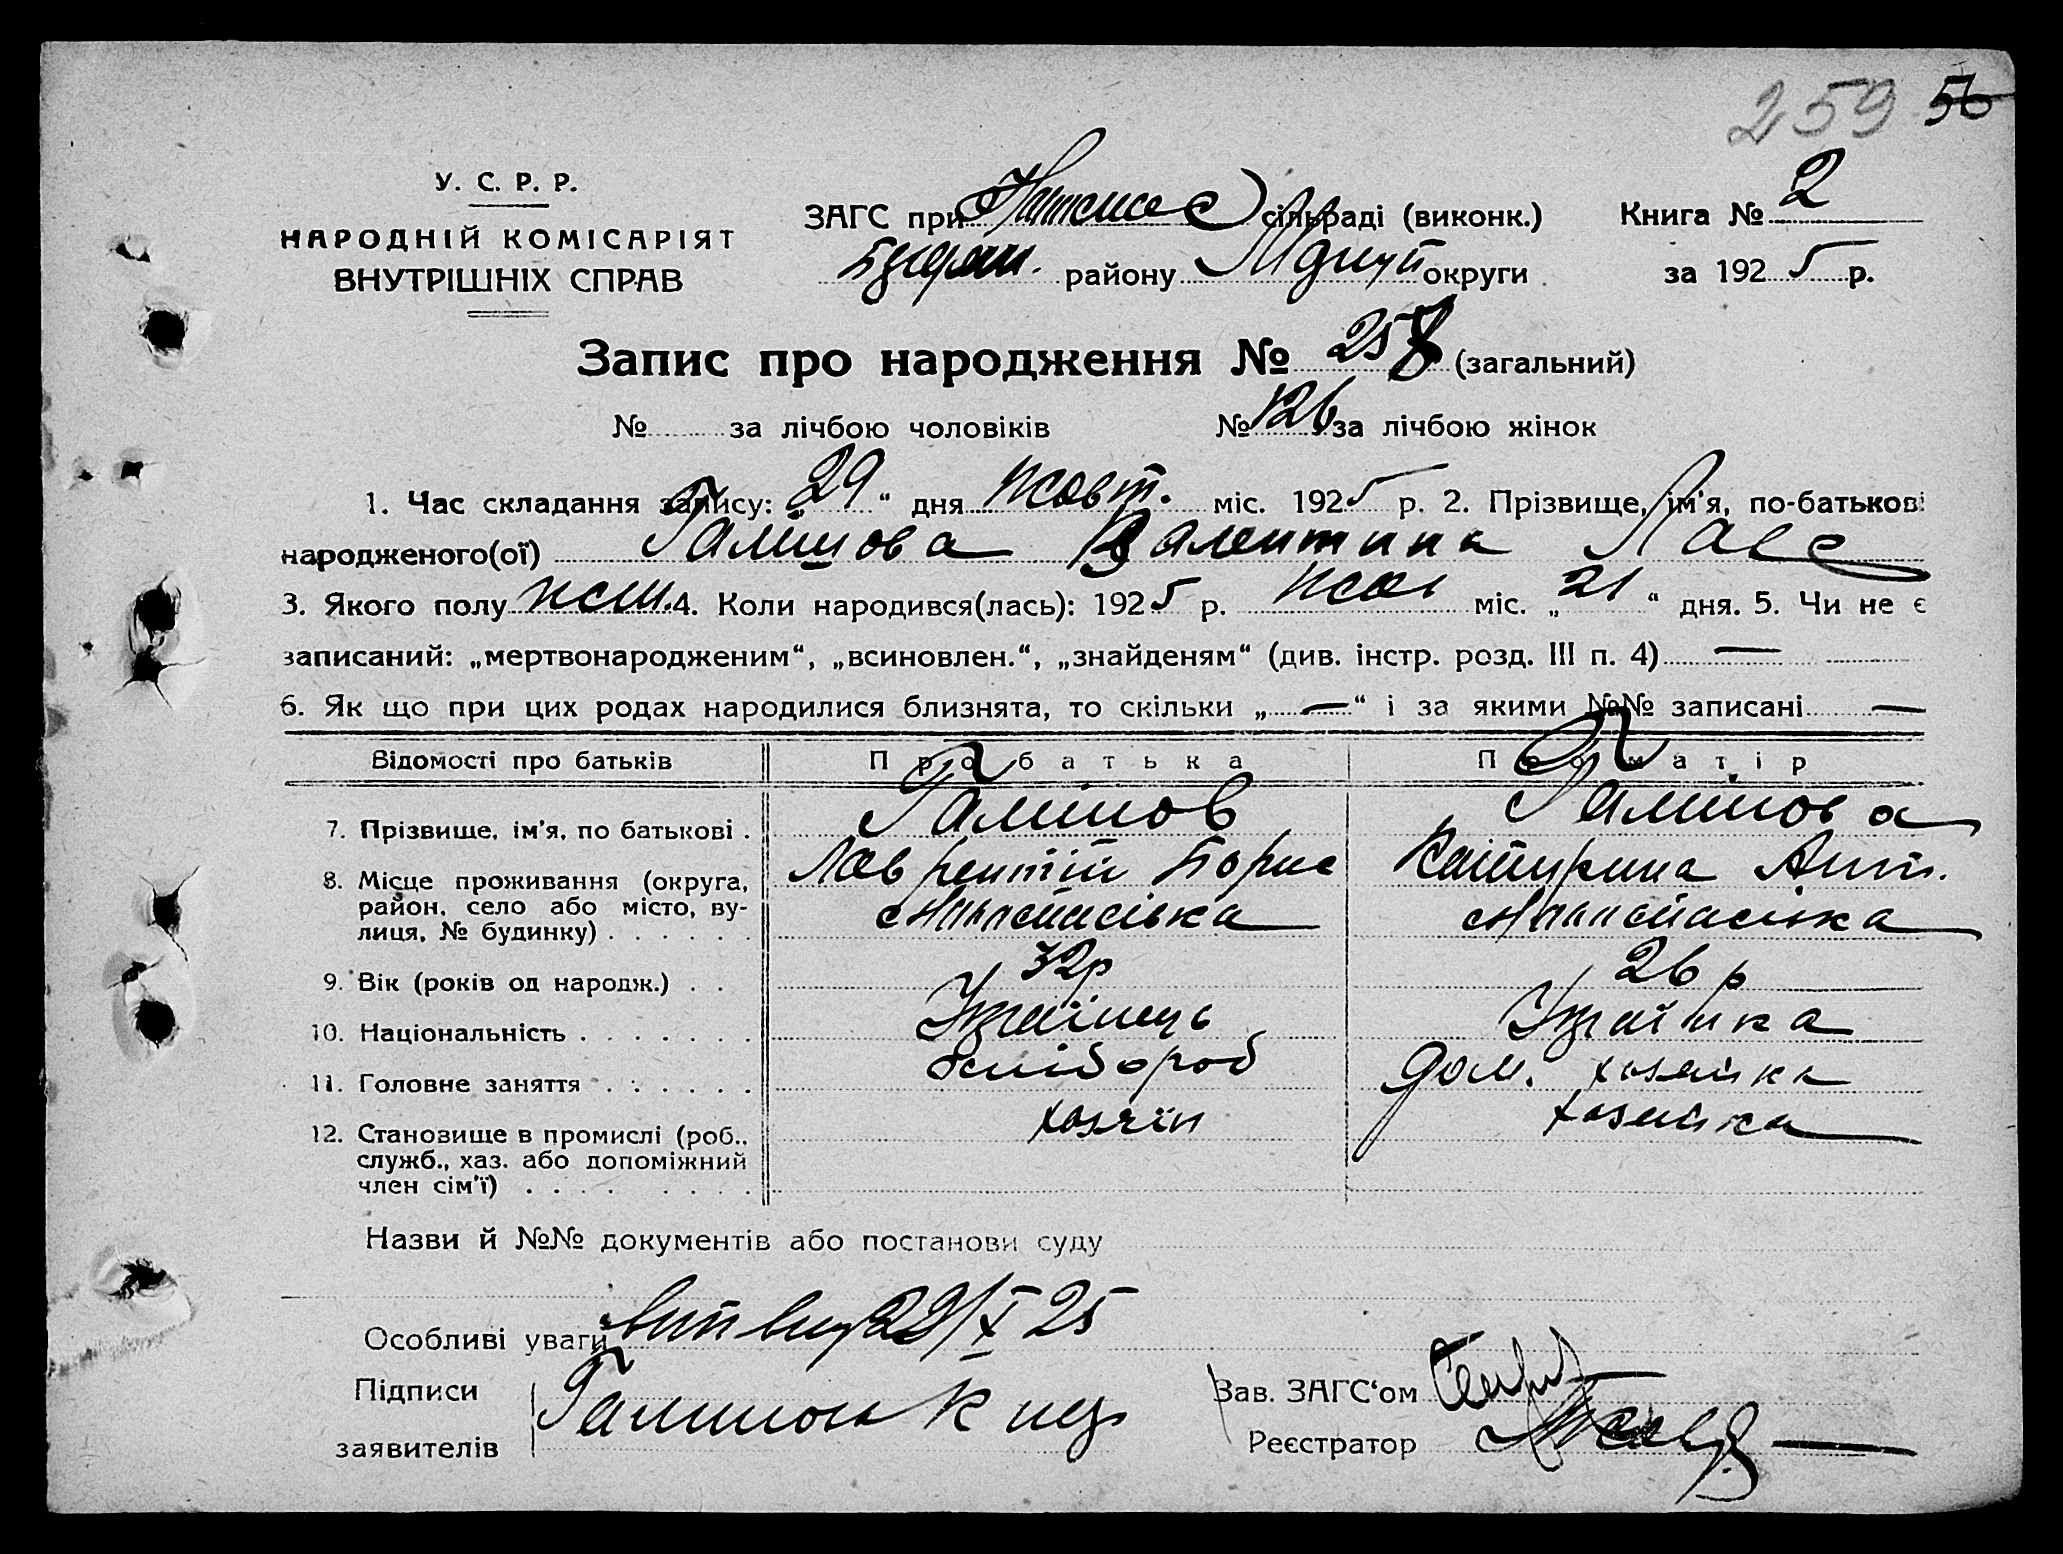 259 56
У. С. Р. Р.
НАРОДНІЙ КОМІСАРІЯТ
ВНУТРІШНІХ СПРАВ
ЗАГС при сільраді (виконк.) Книга № 2
району округи за 1925 р.
Запис про народження № 258 (загальний)
№ за лічбою чоловіків № 126 за лічбою жінок
1. Час складання запису: „29“ дня жовт. міс. 1925 р. 2. Прізвище, ім'я, по-батькові
народженого(ої) Галішова Валентина Лавр
3. Якого полу жін. 4. Коли народився(лась): 1925 р. жов міс. „21“ дня. 5. Чи не є
записаний: „мертвонародженим“, „всиновлен.“, „знайденям“ (див. інстр. розд. III п. 4) —
6. Як що при цих родах народилися близнята, то скільки „—“ і за якими №№ записані —
Відомості про батьків Про батька Про матір
7. Прізвище, ім'я, по батькові . Галішов Галишова
Лаврентій Борис Катирина Ант.
8. Місце проживання (округа,
район, село або місто, ву-
лиця, № будинку) . . . . . .
9. Вік (років од народж.) . . 32р 26 р
10. Національність . . . . . . . Українець Українка
11. Головне заняття . . . . . . хлібороб дом. хозяйка
12. Становище в промислі (роб., хозяїн хозяйка
служб., хаз. або допоміжний
член сім'ї) . . . . . . . .
Назви й №№ документів або постанови суду
Особливі уваги 29/X 25
Підписи
заявителів Галишов К
Зав. ЗАГС'ом
Реєстратор